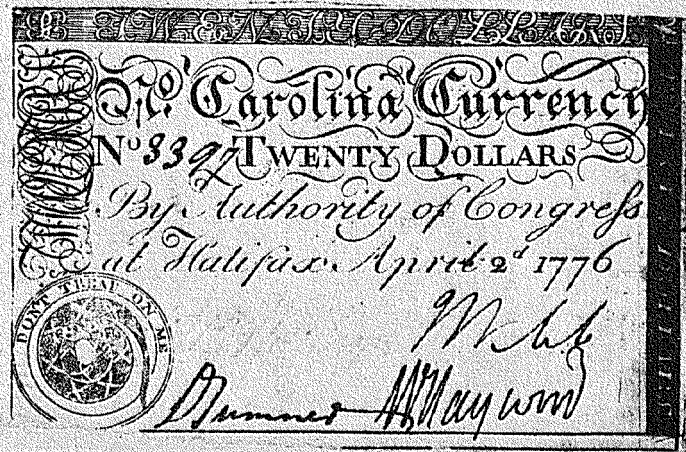 TWENTY DOLLARS
No. Carolina Currency
No 3397 TWENTY DOLLARS
By Authority of Congress
at Halifax April 2d 1776
DONT TREAD ON ME
Webb
Sumner WHaywood